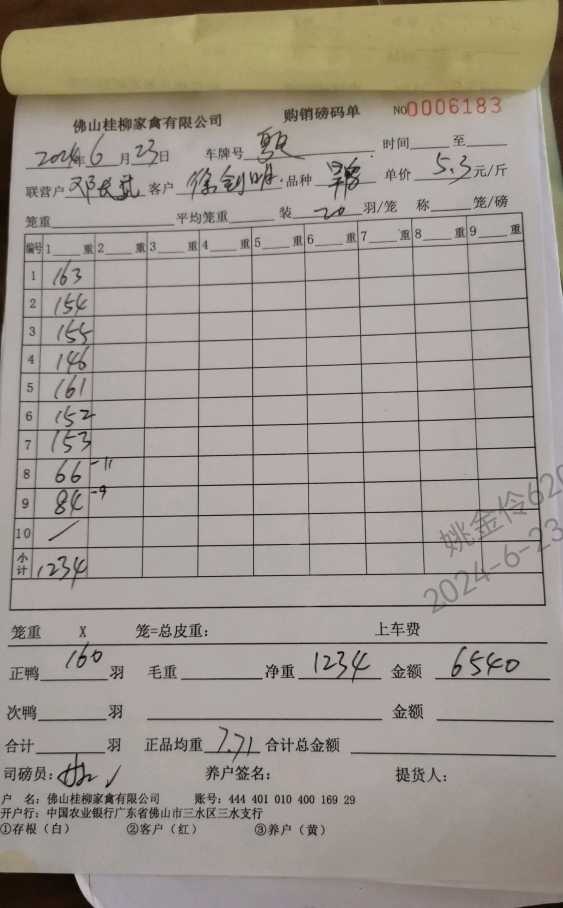 佛山桂柳家禽有限公司 购销磅码单 NO0006183
2024年6月23日 车牌号 时间____至____
联营户 邓 客户 徐剑明 品种 单价 5.3元/斤
笼重____平均笼重____装 20 羽/笼 称____笼/磅
编号 1____重 2____重 3____重 4____重 5____重 6____重 7____重 8____重 9____重
1 163
2 154
3 155
4 146
5 161
6 152
7 153
8 66 -11
9 84 -9
10 /
小计 1234
笼重 X 笼=总皮重: 上车费
正鸭 160 羽 毛重____净重 1234 金额 6540
次鸭____羽 ____ 金额____
合计____羽 正品均重 7.71 合计总金额____
司磅员: 养户签名: 提货人:
户 名: 佛山桂柳家禽有限公司 账号: 444 401 010 400 169 29
开户行: 中国农业银行广东省佛山市三水区三水支行
①存根（白） ②客户（红） ③养户（黄）
姚金伶620
2024-6-23